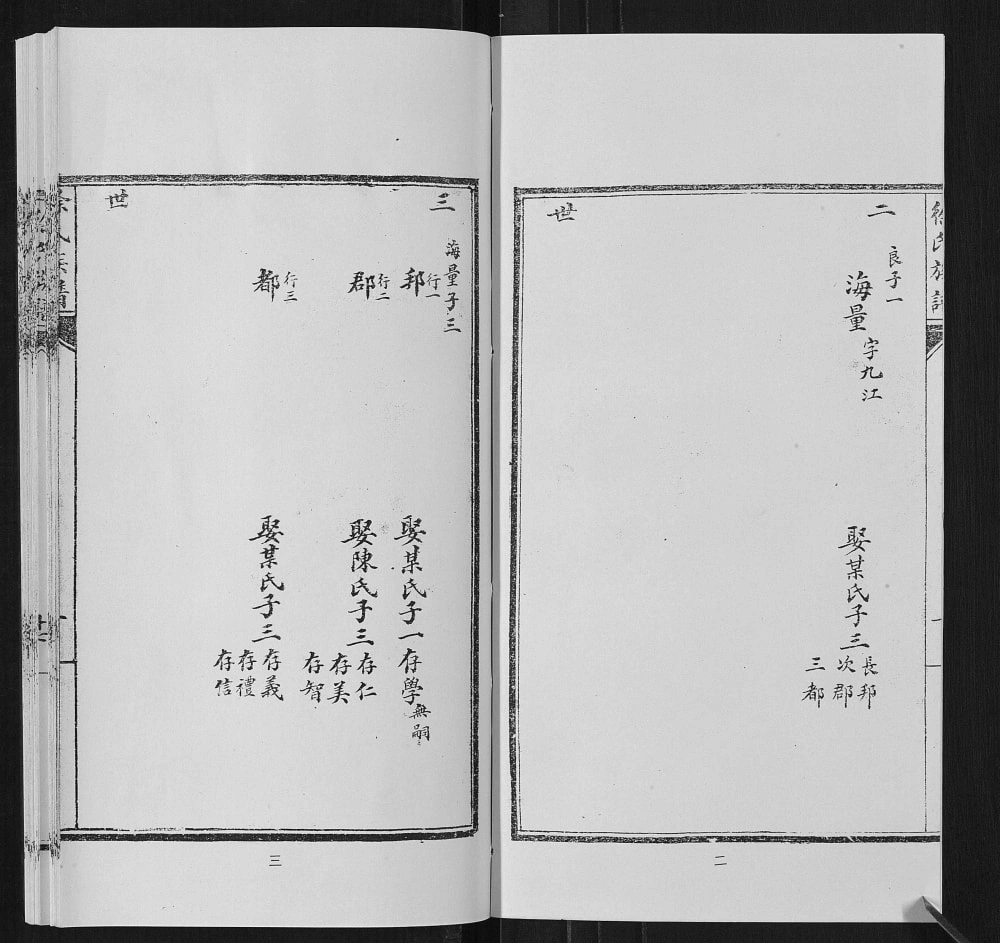 徐氏族譜
二世
良子一
海量字九江
娶某氏子三
長邦
次郡
三都
二
三世
海量子三
邦行一
娶某氏子一存學無嗣
郡行二
娶陳氏子三
存仁
存美
存智
都行三
娶某氏子三
存義
存禮
存信
徐氏族譜
三